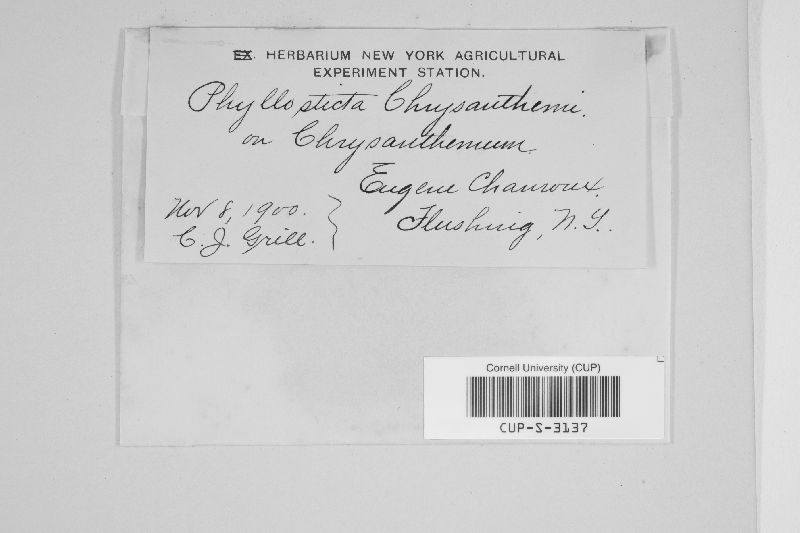 EX. HERBARIUM NEW YORK AGRICULTURAL
EXPERIMENT STATION.
Phyllosticta Chrysanthemi.
on Chrysanthemum.
Eugene
Flushing, N.Y.
Nov 8, 1900.
C. J. Grill.
Cornell University (CUP)
CUP-S-3137